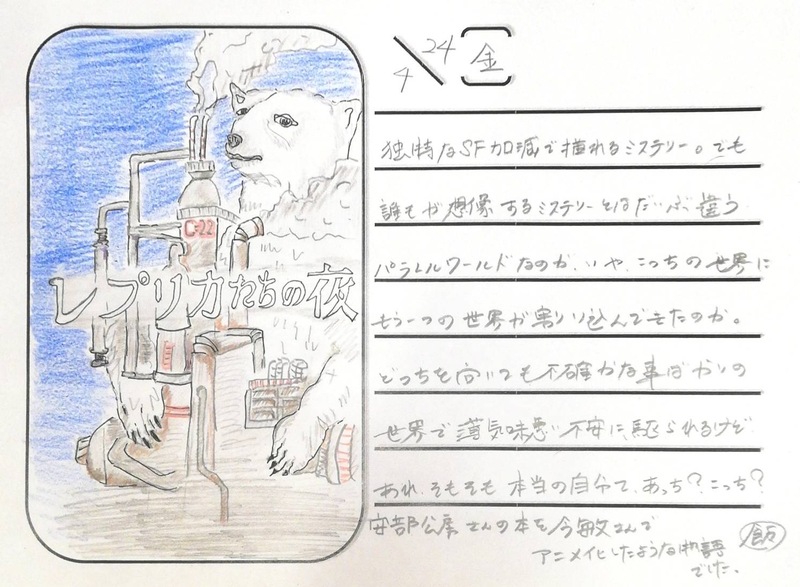 C-22
レプリカたちの夜
4/24 金
独特なSF加減で揺れるミステリー。でも
誰もが想像するミステリーとはだいぶ違う
パラレルワールドなのか、いや、こっちの世界に
もう一つの世界が割り込んできたのか。
どっちを向いても不確かな事ばかりの
世界で薄気味悪い不安に駆られるけど
あれ、そもそも本当の自分て、あっち?こっち?
安部公房さんの本を今敏さんで
アニメイ化したような物語
でした。
飯